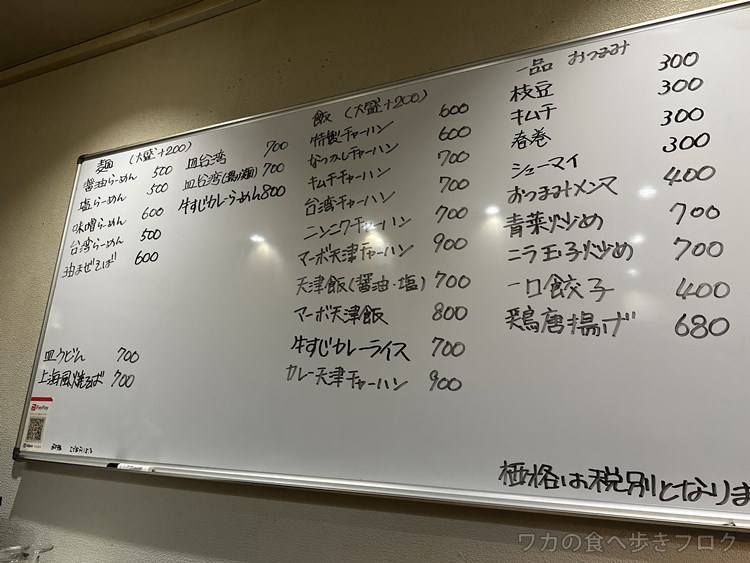 麺 (大盛+200)
醤油らーめん 500
塩らーめん 500
味噌らーめん 600
台湾らーめん 500
油まぜそば 600
皿うどん 700
上海風焼そば 700
PayPay
皿台湾 700
皿台湾 700
牛すじカレーらーめん 800
飯 (大盛+200)
特製チャーハン 600
なつかしチャーハン 600
キムチチャーハン 700
台湾チャーハン 700
ニンニクチャーハン 700
マーボ天津チャーハン 900
天津飯(醤油・塩) 700
マーボ天津飯 800
牛すじカレーライス 700
カレー天津チャーハン 900
一品 おつまみ
枝豆 300
キムチ 300
春巻 300
シューマイ 300
おつまみメンマ 400
青菜炒め 700
ニラ玉子炒め 700
一口餃子 400
鶏唐揚げ 680
価格は税別となりま
ワカの食べ歩きブログ